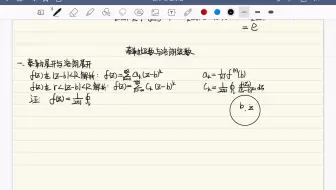 = e
泰勒级数与洛朗级数
一. 泰勒展开与洛朗展开
f(z)在|z-b|<R解析: f(z)=∑aₖ(z-b)ᵏ aₖ=1/k! f⁽ᵏ⁾(b)
f(z)在r<|z-b|<R解析: f(z)=∑Cₖ(z-b)ᵏ Cₖ=1/2πi ∮
注: f(z)=1/2πi ∮
b. z